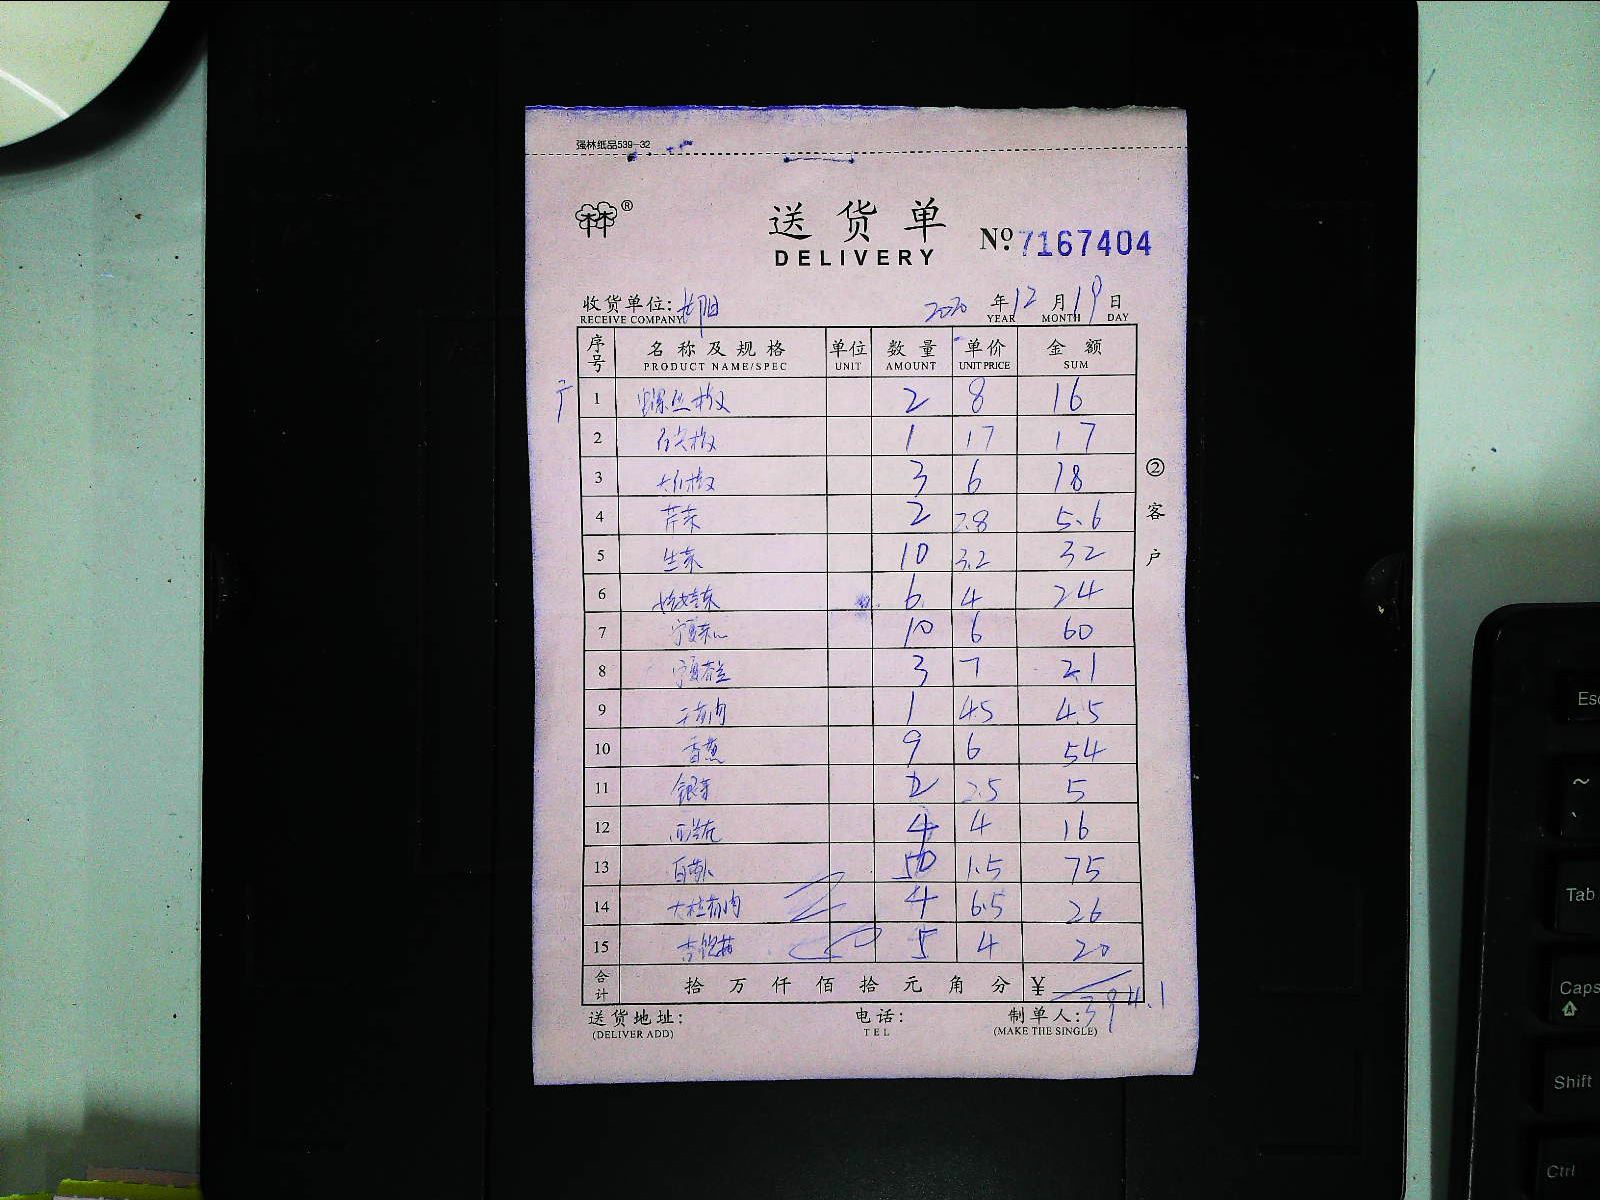 强林纸品539-32
林®
送货单
DELIVERY
No. 7167404
收货单位: 2020 年 12 月 19 日
RECEIVE COMPANY YEAR MONTH DAY
序号 名称及规格 单位 数量 单价 金额
PRODUCT NAME/SPEC UNIT AMOUNT UNIT PRICE SUM
1 螺丝椒 2 8 16
2 1 17 17
3 3 6 18
4 芹菜 2 2.8 5.6
5 生菜 10 3.2 32
6 娃娃菜 6 4 24
7 宁夏菜心 10 6 60
8 宁夏芥兰 3 7 21
9 1 4.5 4.5
10 香蕉 9 6 54
11 银芽 2 2.5 5
12 西洋菜 4 4 16
13 50 1.5 75
14 4 6.5 26
15 5 4 20
合计 拾万仟佰拾元角分 ¥ 394.1
送货地址: 电话: 制单人:
(DELIVER ADD) TEL (MAKE THE SINGLE)
②客户